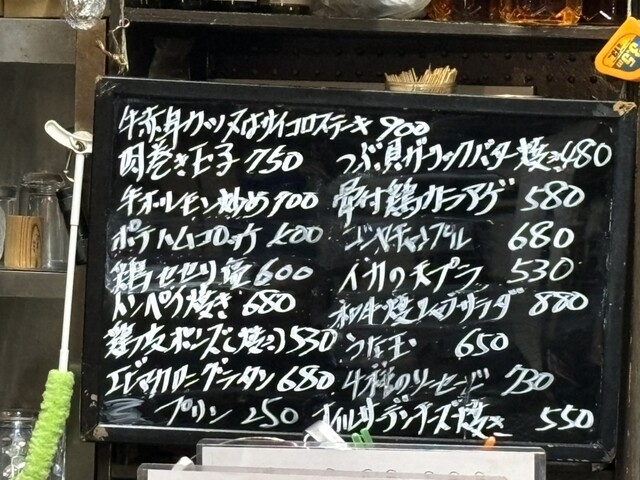 牛赤身カッパ又はサイコロステーキ 900
肉巻き玉子 750
牛ホルモン炒め 900
ポテハムコロッケ 600
鶏セセリ塩 600
トンペイ焼き 680
鶏皮ポンズ(焼き) 530
エビマカロニグラタン 680
プリン 250
つぶ貝ガーリックバター焼き 480
骨付鶏カラアゲ 580
ゴーヤチャンプル 680
イカの天プラ 530
和牛焼しゃぶサラダ 880
うな玉 650
4種のソーセージ 730
オイルサーデンチーズ焼き 550